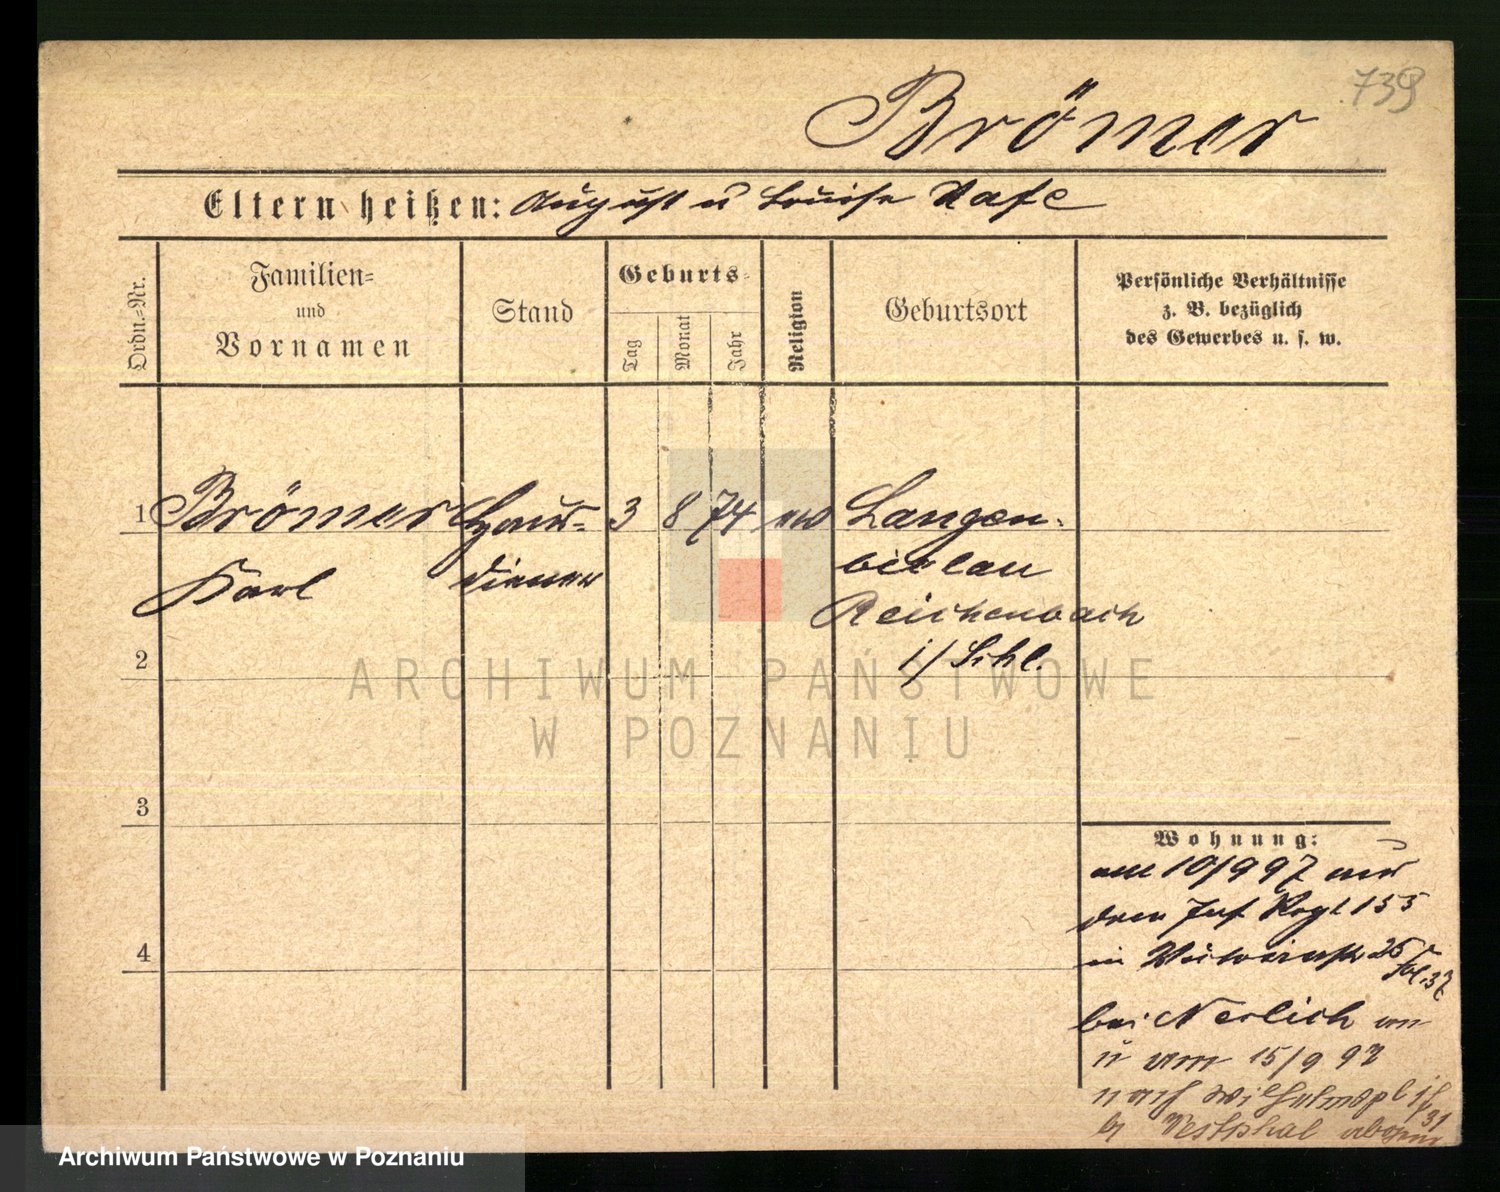 739
Brömer
Eltern heißen: August u Louise Hase
Ordn.=Nr.
Familien=
und
Vornamen
Stand
Geburts=
Tag
Monat
Jahr
Religion
Geburtsort
Persönliche Verhältnisse
z. B. bezüglich
des Gewerbes u. s. w.
1 Brömer Haus= 3 8 74 ev Langen-
bielau
Karl diener
Reichenbach
i/Schl.
2
3
4
Wohnung:
am 10/9 97 aus
dem Inf Regt 155
in
bei Nerlich an
u vom 15/9 97
nach Wilhelmspl
b Westphal
ARCHIWUM PAŃSTWOWE
W POZNANIU
Archiwum Państwowe w Poznaniu